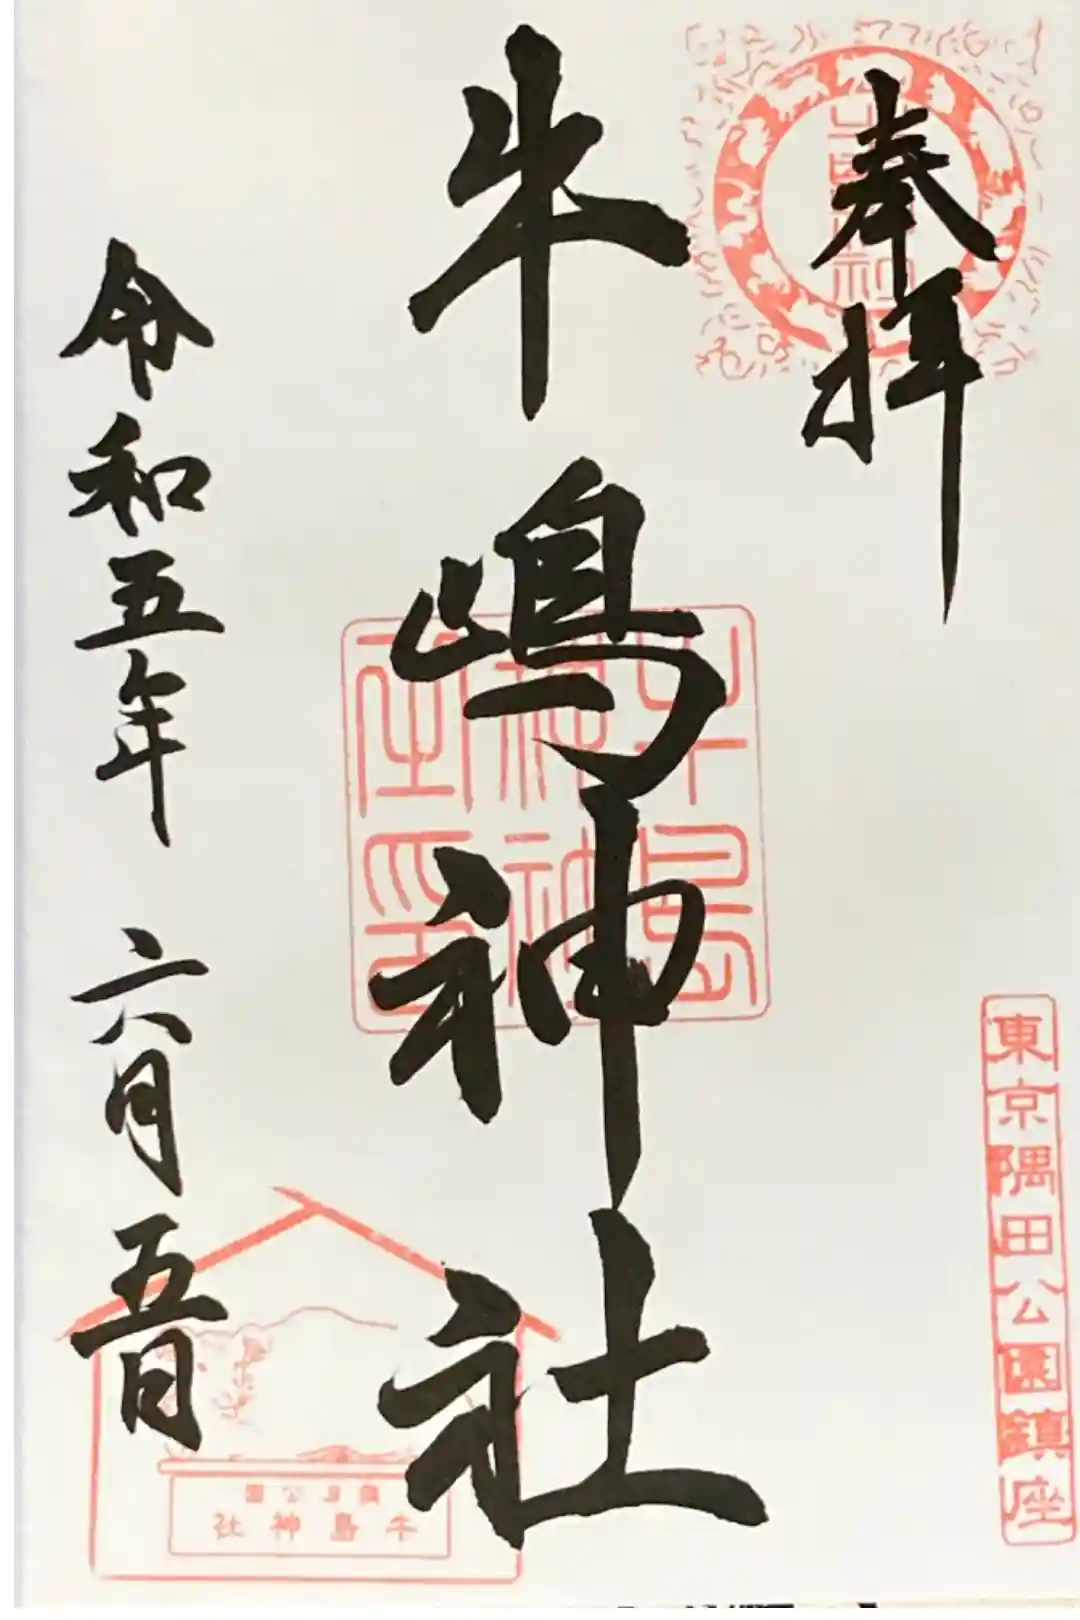 奉拝
東京隅田公園鎮座
牛嶋神社
牛島神社之印
令和五年 六月五日
隅田公園
牛島神社